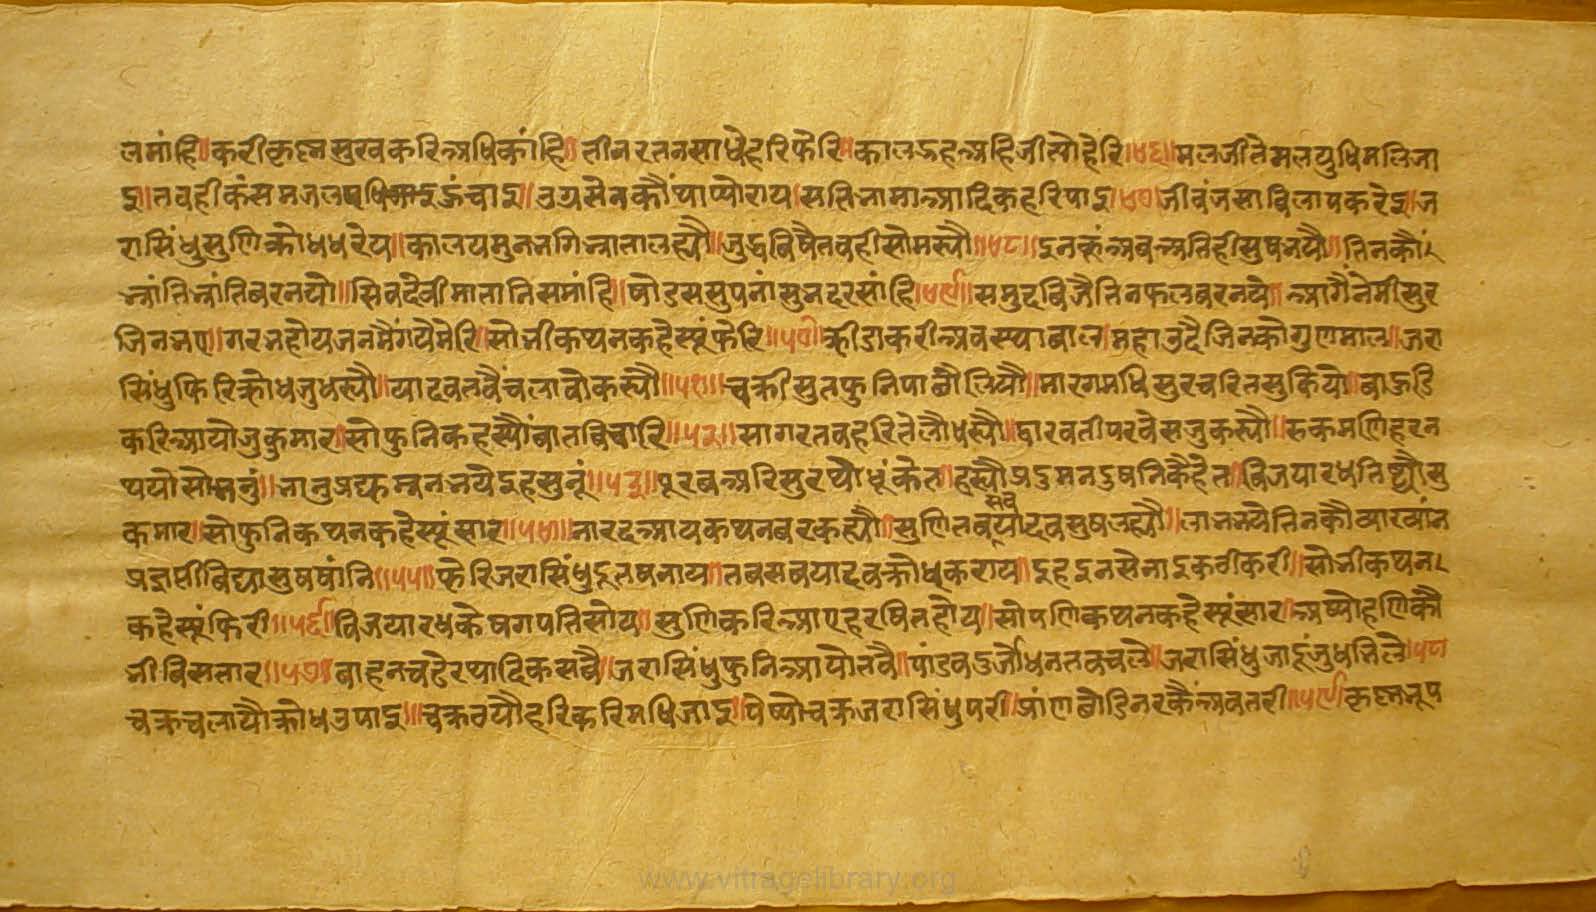 लमांहि॥करीकृष्णसुखकरिअधिकांहि॥तीनरतनसाधेहरिफेरि॥कालीअहिजीत्योहेरि॥४६॥मलजीतेमलयुधिमलिजा
इ॥तवहीकंसमजलषधिऊंचाइ॥उग्रसेनकौंथाप्योराय॥सतिनामाआदिकहरिपाइ॥४७॥जीवंजसाविलापकरेइ॥ज
रासिंधुसुणिक्रोधधरेय॥कालयमुनभगिआतालह्यौ॥जुद्धविषैतवहीसोमस्यौ॥४८॥इनकूंअवअतिहीसुषभयौ॥तिनकौ
भांतिभांतिबरनयो॥सिवदेवीमातानिसमांहि॥षोडससुपनांसुभदरसांहि॥४९॥समुदविजैतिनफलबरनये॥आगैंनेमीसुर
जिनभए॥गरभहोयजनमैंगयेमेरि॥सोभीकथनकहेस्यूंफेरि॥५०॥क्रीडाकरीअवस्थाबाल॥महाउदैजिनकोगुणमाल॥जरा
सिंधुफिरिक्रोधजुधस्यौ॥यादवतवैंचलावोकस्यौ॥५१॥चक्रीसुतफुनिपाछौलियौ॥मारगमधिसुरचरितसुकियो॥बाऊडि
करिआयोजुकुमार॥सोफुनिकहस्यौंबातविचारि॥५२॥सागरतवहरितेलौधस्यौ॥द्वारवतीपरवेसजुकस्यौ॥रुकमणिहरन
थयोसोभनुं॥भानुप्रद्युम्नजनभयेइहसुनूं॥५३॥पूरबअरिसुरथौधूंकेत॥हस्यौप्रदुमनदुषनिकैहेत॥विजयारधतिष्ठ्यौसु
कमार॥सोफुनिकथनकहेस्यूंसार॥५४॥नारदआयकथनबरकह्यौ॥सुणितबयादवसबसुषलह्यौ॥लाभभयेतिनकौव्याख्यांन
प्रज्ञप्तीबिद्यासुषषांनि॥५५॥फेरिजरासिंधुदूतषनाय॥तबसबयादवक्रोधकराय॥इहइनसेनाइकठीकरी॥सोभीकथन
कहेस्यूंफिरी॥५६॥विजयारधकेषगपतिसोय॥सुणिकरिआएहरषितहोय॥सोपणिकथनकहेस्यूंसार॥आप्योहणिकौ
भीबिसतार॥५७॥बाहनचढेरथादिकसवै॥जरासिंधुफुनिआयोतवै॥पांडवदुर्जोधनतबचले॥जरासिंधुजादूंजुधमिले॥५८
चक्रचलायौक्रोधउपाइ॥चक्रवयौहरिकरिमधिजाइ॥पेष्योचक्रजरासिंधुपरी॥प्रांणछोडिनरकैंअवतरी॥५९॥कृष्णनृप
www.vitragelibrary.org